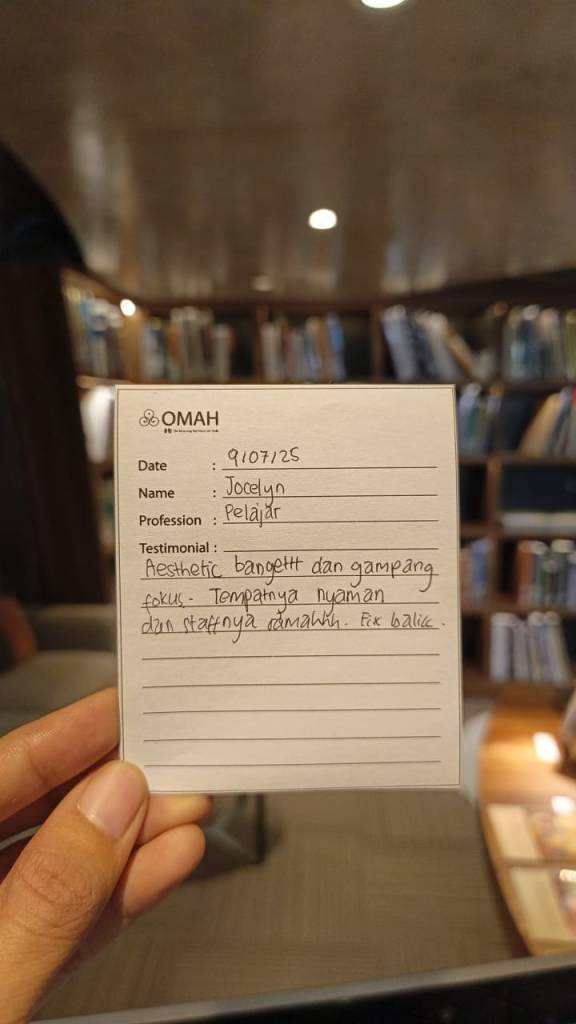 OMAH
Date : 9/07/25
Name : Jocelyn
Profession : Pelajar
Testimonial :
Aesthetic bangettt dan gampang
fokus. Tempatnya nyaman
dan staffnya ramahhh. Fix balik.